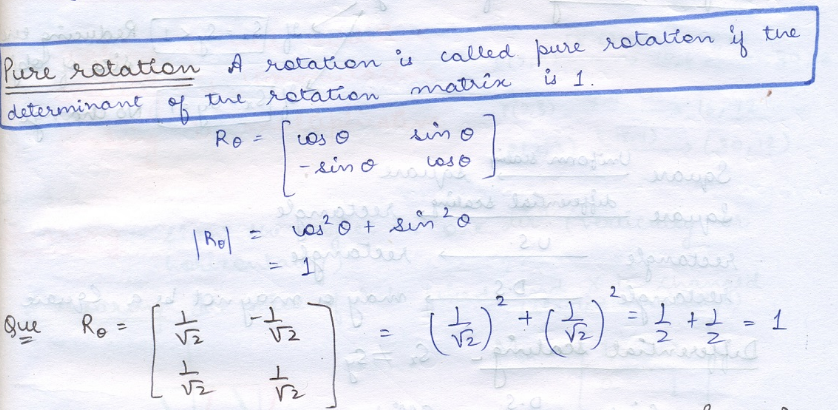 Pure rotation A rotation is called pure rotation if the
determinant of the rotation matrix is 1.
Rθ = [ cos θ sin θ
- sin θ cos θ ]
|Rθ| = cos² θ + sin² θ
= 1
Que Rθ = [ 1/√2 -1/√2
1/√2 1/√2 ] = (1/√2)² + (1/√2)² = 1/2 + 1/2 = 1